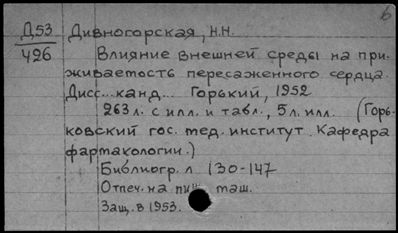 б
Д53 Дивногорская, Н.Н.
426 Влияние внешней среды на при-
живаемость пересаженного сердца.
Дисс... канд... Горький, 1952
263 л. с илл. и табл., 5 л. илл. (Горь-
ковский гос. мед. институт. Кафедра
фармакологии.)
Библиогр. л 130-147
Отпеч. на пиш. маш.
Защ. в 1953.